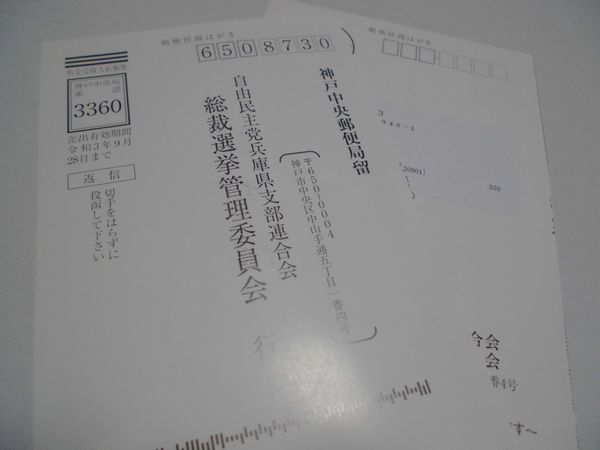 郵便往復はがき
6508730
料金受取人払郵便
神戸中央局
承認
3360
差出有効期間
令和3年9月
28日まで
返信
切手をはらずに
投函して下さい
神戸中央郵便局留
〒650-0004
神戸市中央区中山手通五丁目一番四号
自由民主党兵庫県支部連合会
総裁選挙管理委員会 行
郵便往復はがき
3
949-1
20901]
550
会
会
番4号
す～